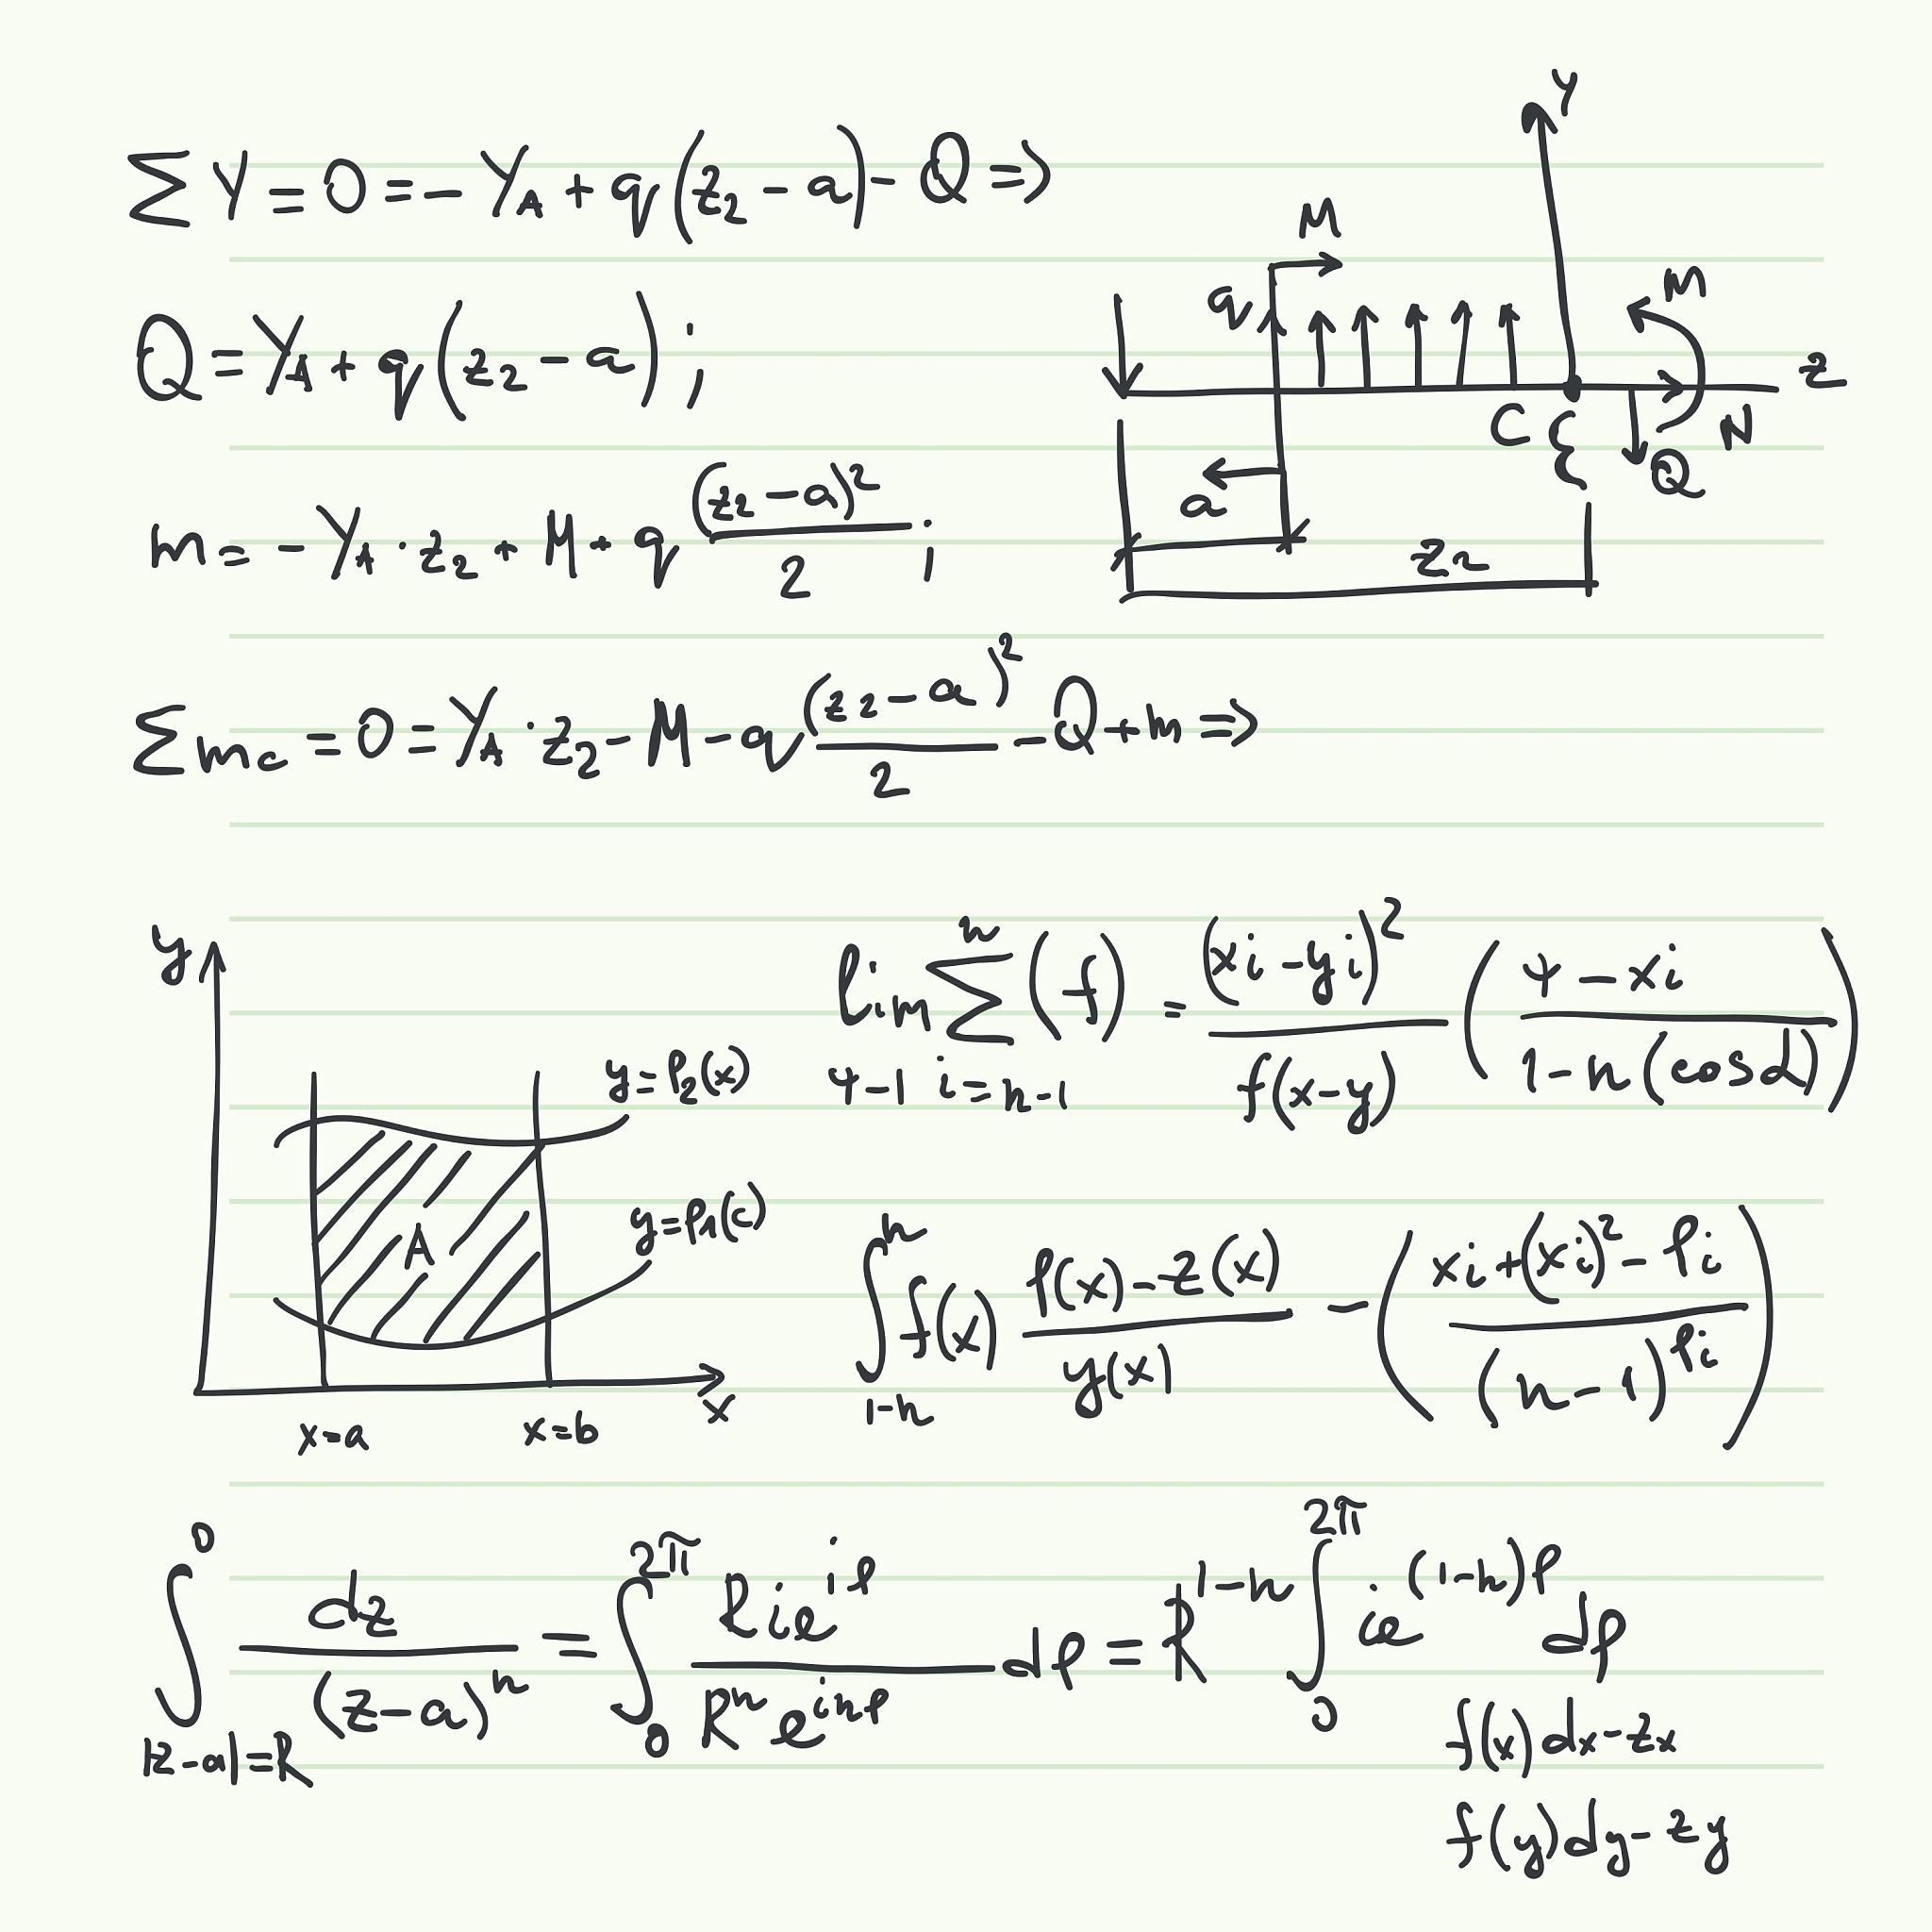 ∑Y = 0 = - Y_A + q(z₂ - a) - Q =>
Q = Y_A + q(z₂ - a);
m = - Y_A · z₂ + M + q (z₂ - a)²/2;
∑m_c = 0 = Y_A · z₂ - M - q (z₂ - a)²/2 - Q + m =>
Y
M
q
m
z
C
N
Q
a
z₂
y
y = f₂(x)
y = f₁(c)
A
x
x = a
x = b
lim ∑ⁿ (f) = (xi - yi)²/f(x - y) (4 - xi/1 - n(cosα))
4 - 1 i = n - 1
∫ₙ₁₋ₙ f(x) f(x) - z(x)/y(x) - (xi + (xi)² - fi/(n - 1)^fi)
∫⁰_|z - a| = R dz/(z - a)ⁿ = ∫₀^2π Rie^iφ/Rⁿe^inφ dφ = R^1-n ∫₀^2π ie^(1-n)φ dφ
f(x)dx - zx
f(y)dy - zy